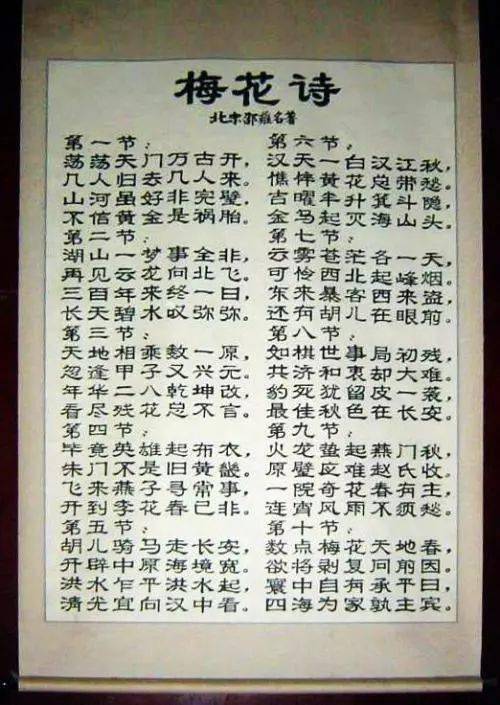 梅花诗
北宋邵雍名著
第一节：
荡荡天门万古开，
几人归去几人来。
山河虽好非完璧，
不信黄金是祸胎。
第二节：
湖山一梦事全非，
再见云龙向北飞。
三百年来终一日，
长天碧水叹弥弥。
第三节：
天地相乘数一原，
忽逢甲子又兴元。
年华二八乾坤改，
看尽残花总不言。
第四节：
毕竟英雄起布衣，
朱门不是旧黄畿。
飞来燕子寻常事，
开到李花春已非。
第五节：
胡儿骑马走长安，
开辟中原海境宽。
洪水乍平洪水起，
清光宜向汉中看。
第六节：
汉天一白汉江秋，
憔悴黄花总带愁。
吉曜半升箕斗隐，
金乌起灭海山头。
第七节：
云雾苍茫各一天，
可怜西北起烽烟。
东来暴客西来盗，
还有胡儿在眼前。
第八节：
如棋世事局初残，
共济和衷却大难。
豹死犹留皮一袭，
最佳秋色在长安。
第九节：
火龙蛰起燕门秋，
原璧应难赵氏收。
一院奇花春有主，
连宵风雨不须愁。
第十节：
数点梅花天地春，
欲将剥复问前因。
寰中自有承平日，
四海为家孰主宾。